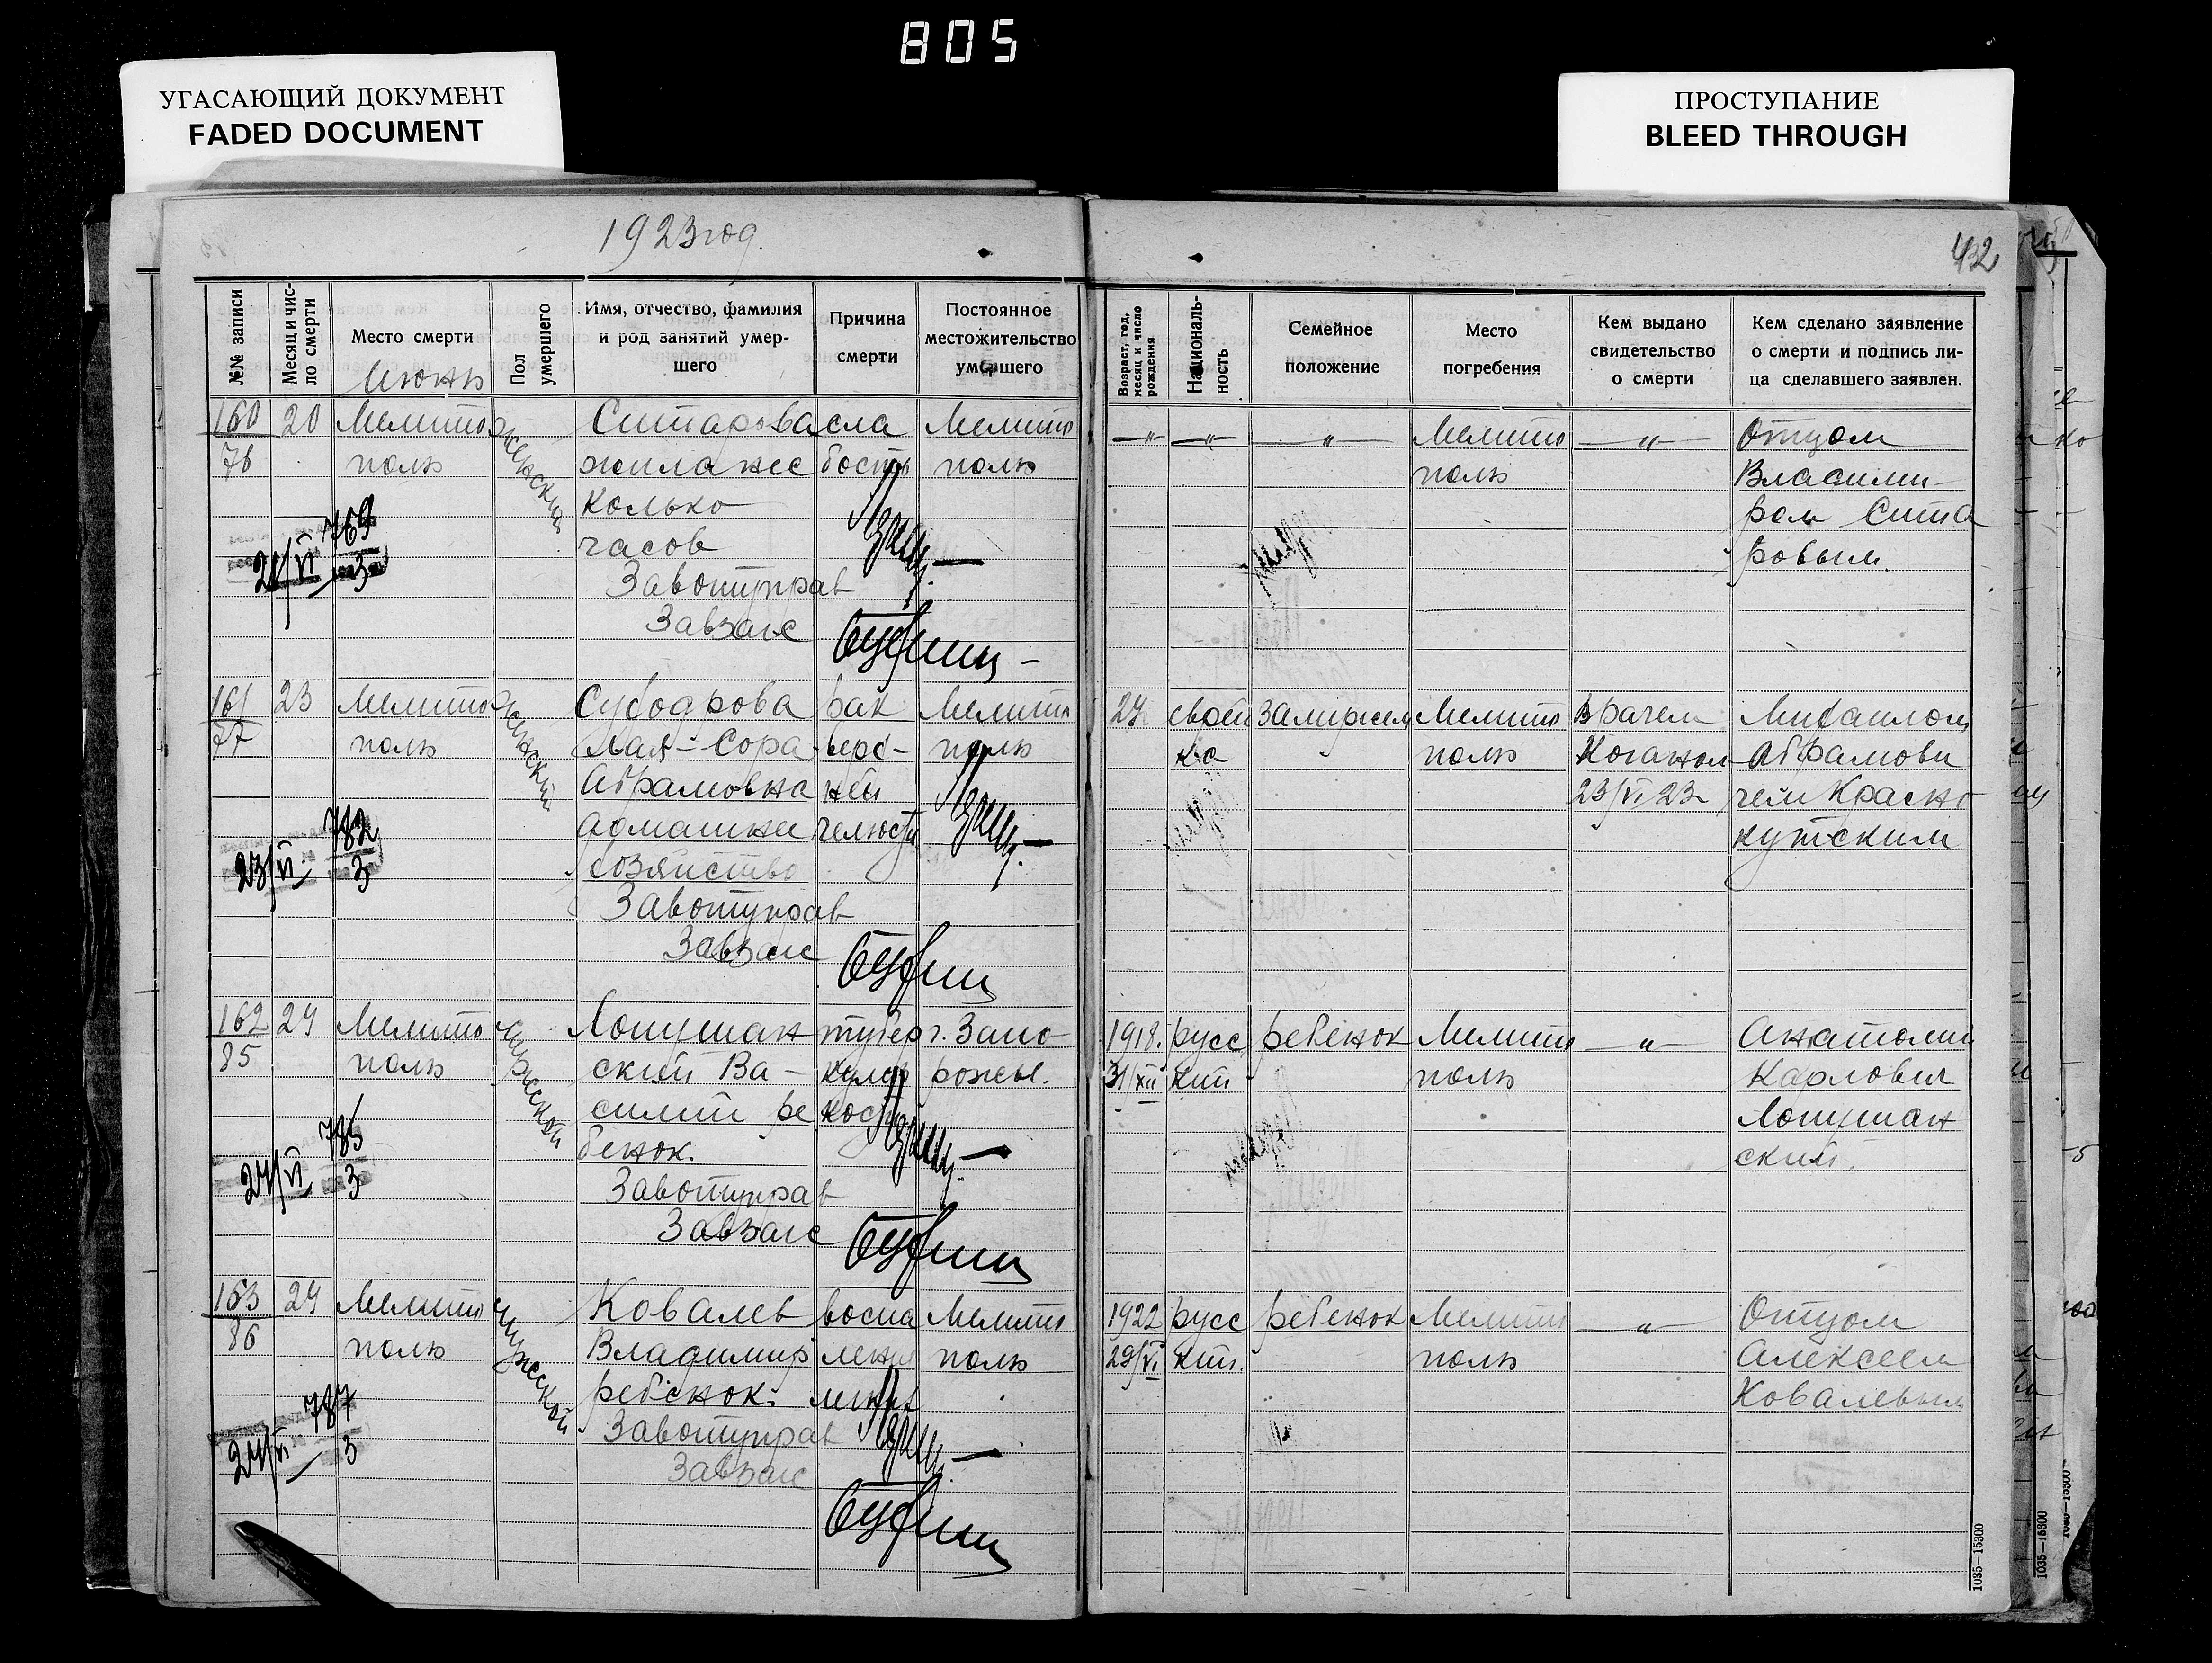 805
УГАСАЮЩИЙ ДОКУМЕНТ
FADED DOCUMENT
ПРОСТУПАНИЕ
BLEED THROUGH
1923 год.
432
№№ записи
Месяц и чис-
ло смерти
Место смерти
Июнь
Пол
умершего
Имя, отчество, фамилия
и род занятий умер-
шего
Причина
смерти
Постоянное
местожительство
умершего
Возраст, год,
месяц и число
рождения
Националь-
ность
Семейное
положение
Место
погребения
Кем выдано
свидетельство
о смерти
Кем сделано заявление
о смерти и подпись ли-
ца сделавшего заявлен.
160
76
20
Мелито
поль
женский
Ситарова
жила нес
колько
часов
Завотуправ
Завзагс
сла
бость
Мелито
поль
21/VI
769
3
—〃—
—〃—
—〃—
Мелито
поль
—〃—
Отцом
Владими-
ром Сита
ровым.
161
77
23
Мелито
поль
женский
Суходрова
Мая-Сора
Абрамовна
домашнее
хозяйство
Завотуправ
Завзагс
рак
верх-
ней
челюсти
Мелито
поль
23/VI
782
3
27
еврей
ка
Замужем
Мелито
поль
Врачем
Коганом
23/VI 23
Михаилом
Абрамови
чем Красно
кутским
162
85
24
Мелито
поль
мужеской
Лопушан
ский Ва-
силий ре
бенок.
Завотуправ
Завзагс
тубер
кулез
г. Запо
рожье.
24/VI
785
3
1918.
31/XII
русс
кий
ребенок
Мелито
поль
—〃—
Анатолий
Карлович
Лопушан
ский.
163
86
24
Мелито
поль
мужеской
Ковалев
Владимир
ребенок.
Завотуправ
Завзагс
воспа
ление
Мелито
поль
24/VI
787
3
1922
29/VI
русс
кий.
ребенок
Мелито
поль
—〃—
Отцом
Алексеем
Ковалевым
1035—15300
1035—15300